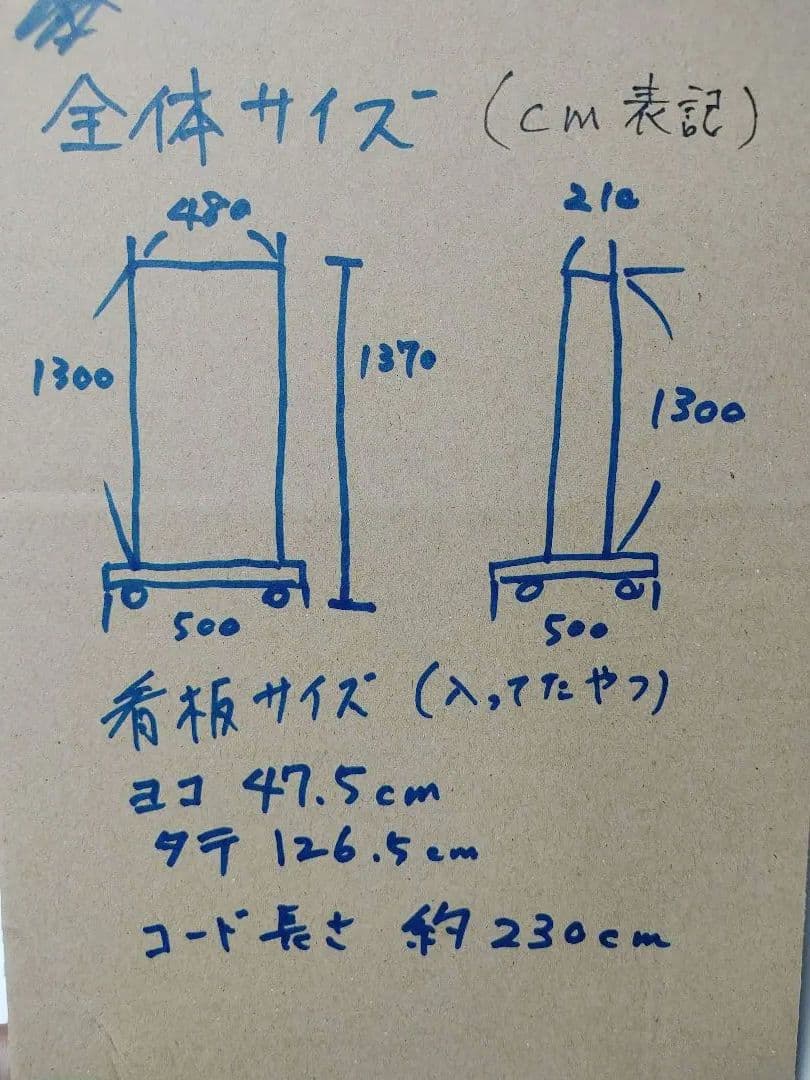 全体サイズ (cm 表記)
480
210
1300
1370
1300
500
500
看板サイズ (入ってたやつ)
ヨコ 47.5cm
タテ 126.5cm
コード長さ 約230cm